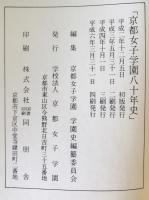 「京都女子学園八十年史」
平成二年十二月五日　初版発行
平成三年五月三十一日　二刷発行
平成四年十月一日　三刷発行
平成六年三月三十一日　四刷発行
編集　京都女子学園　学園史編纂委員会
発行　学校法人　京都女子学園
京都市東山区今熊野北日吉町三十五番地
印刷　株式会社　同朋舎
京都市下京区中堂寺鍵田町二番地